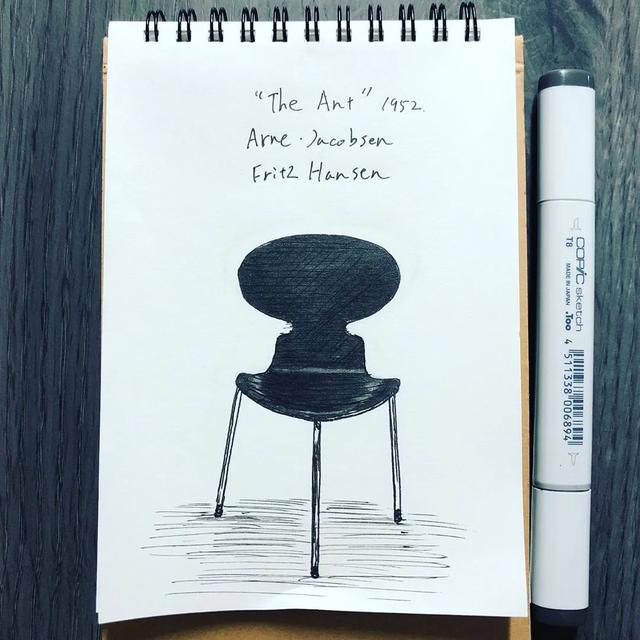 "The Ant" 1952.
Arne・Jacobsen
Fritz Hansen
COPIC sketch
T8 MADE IN JAPAN .Too
4 511338 006894